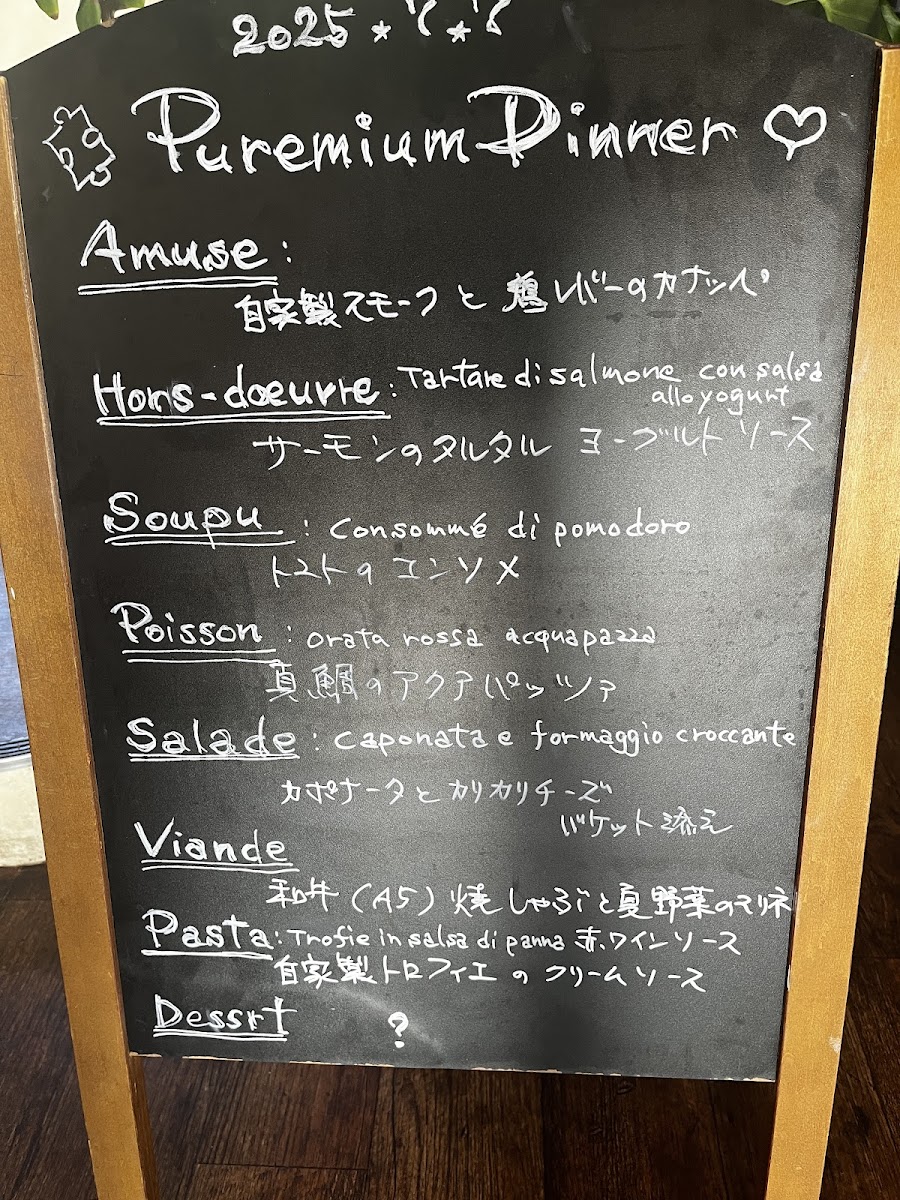 2025★7★7
Puremium Dinner ♡
Amuse :
自家製スモークと鶏レバーのカナッペ
Hors-doeuvre : Tartare di salmone con salsa
allo yogurt
サーモンのタルタル ヨーグルトソース
Soupu : Consommé di pomodoro
トマトのコンソメ
Poisson : orata rossa acquapazza
真鯛のアクアパッツァ
Salade : Caponata e formaggio croccante
カポナータとカリカリチーズ
バケット添え
Viande
和牛(A5)焼しゃぶと夏野菜のマリネ
赤ワインソース
Pasta : Trofie in salsa di panna
自家製トロフィエのクリームソース
Dessrt ?